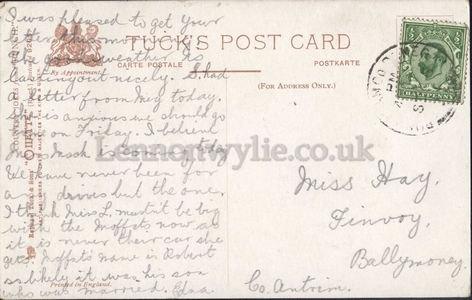 I was pleased to get your
letter this morning
the good weather is
lasting out nicely. I had
a letter from Meg today.
she is anxious we should go
on Friday. I believe
Miss is coming today
We have never been for
any drives but the one,
I think Miss L. mustn't be big
with the Moffats now as
it is never their car she
gets. Moffat's name is Robert
so likely it was his son
who was married. Edna
TUCK'S POST CARD
CARTE POSTALE
POSTKARTE
(FOR ADDRESS ONLY.)
By Appointment.
Raphael Tuck & Sons'
"OILETTE"
Printed in England.
Lennonwylie.co.uk
Miss Hay,
Finvoy,
Ballymoney
Co. Antrim.